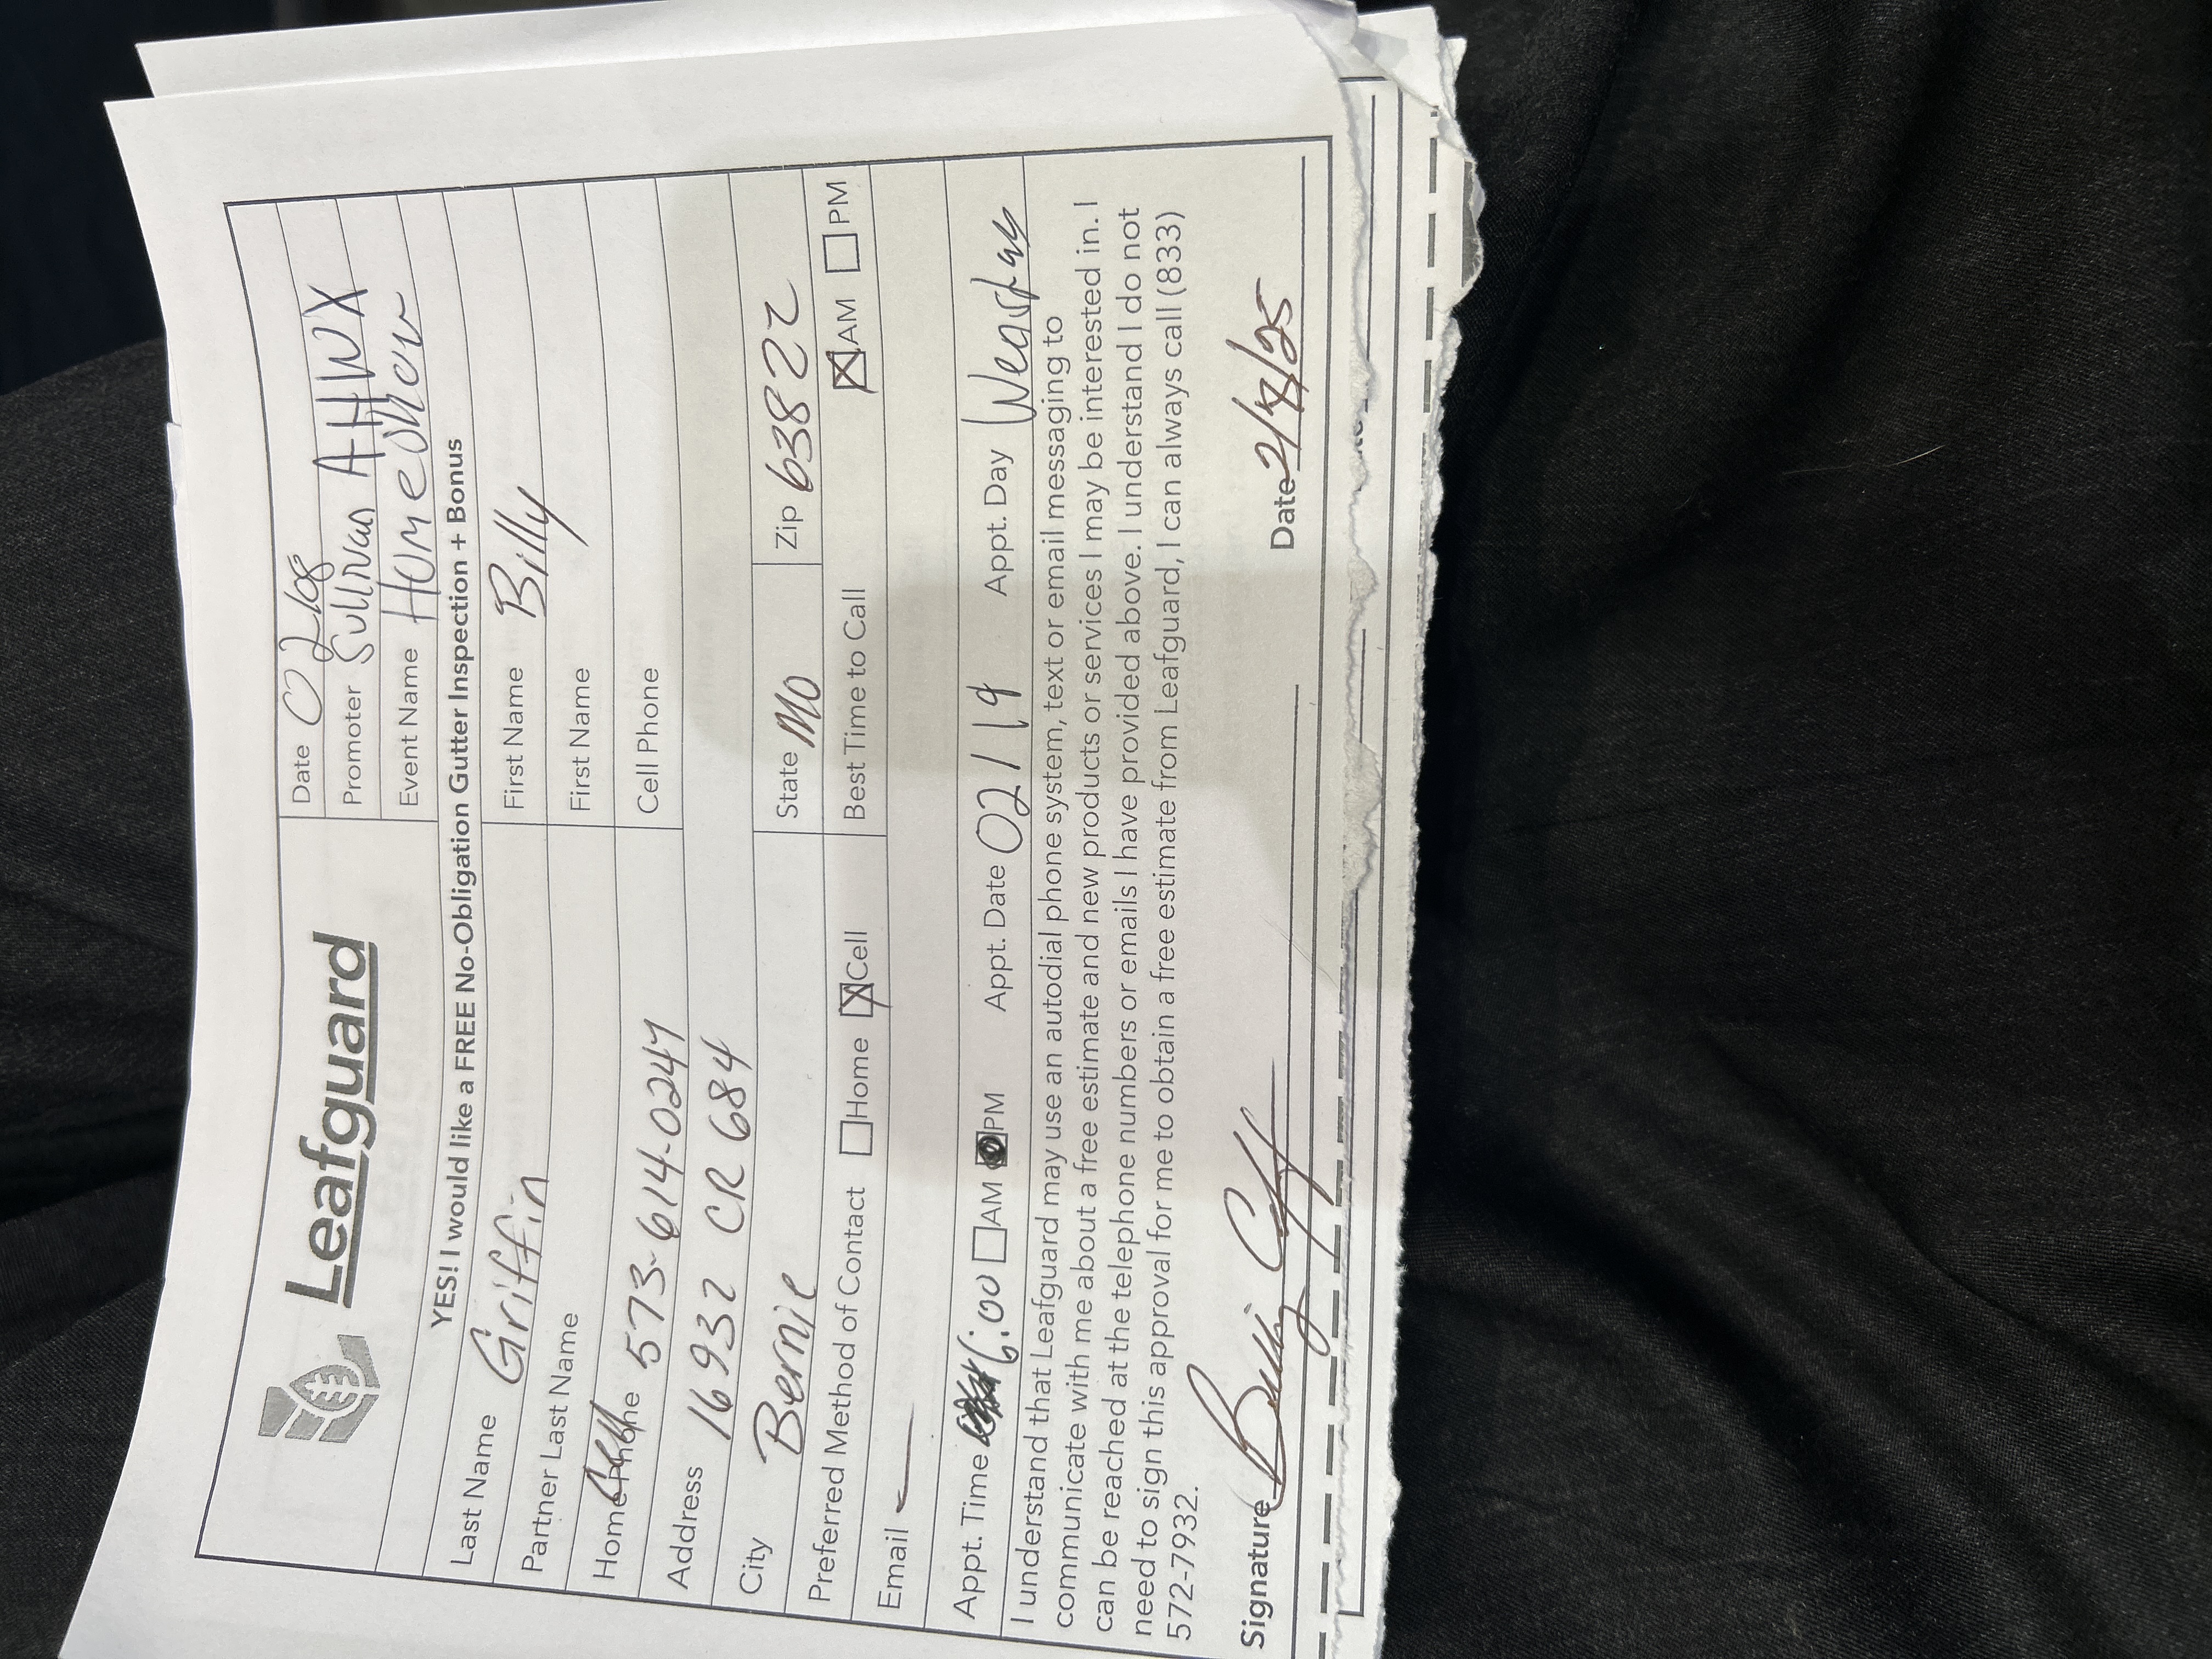 Leafguard
Date 0208
Promoter Sullivan AHWX
Event Name HomeShow
YES! I would like a FREE No-Obligation Gutter Inspection + Bonus
Last Name Griffin First Name Billy
Partner Last Name First Name
Home Phone Cell 573-614-0247 Cell Phone
Address 16932 CR 684
City Bernie State MO Zip 63822
Preferred Method of Contact Home Cell Best Time to Call AM PM
Email —
Appt. Time 6:00 AM PM Appt. Date 02/19 Appt. Day
I understand that Leafguard may use an autodial phone system, text or email messaging to
communicate with me about a free estimate and new products or services I may be interested in. I
can be reached at the telephone numbers or emails I have provided above. I understand I do not
need to sign this approval for me to obtain a free estimate from Leafguard, I can always call (833)
572-7932.
Signature Date 2/8/25